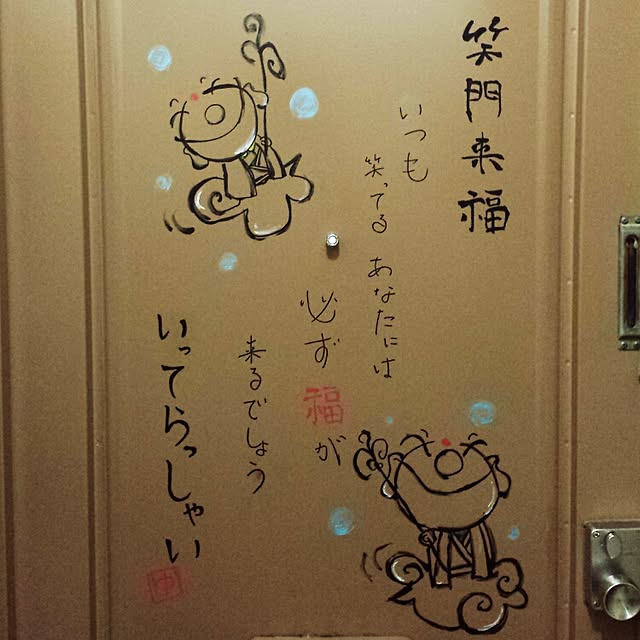 笑門来福
いつも
笑ってる あなたには
必ず 福が
来るでしょう
いってらっしゃい